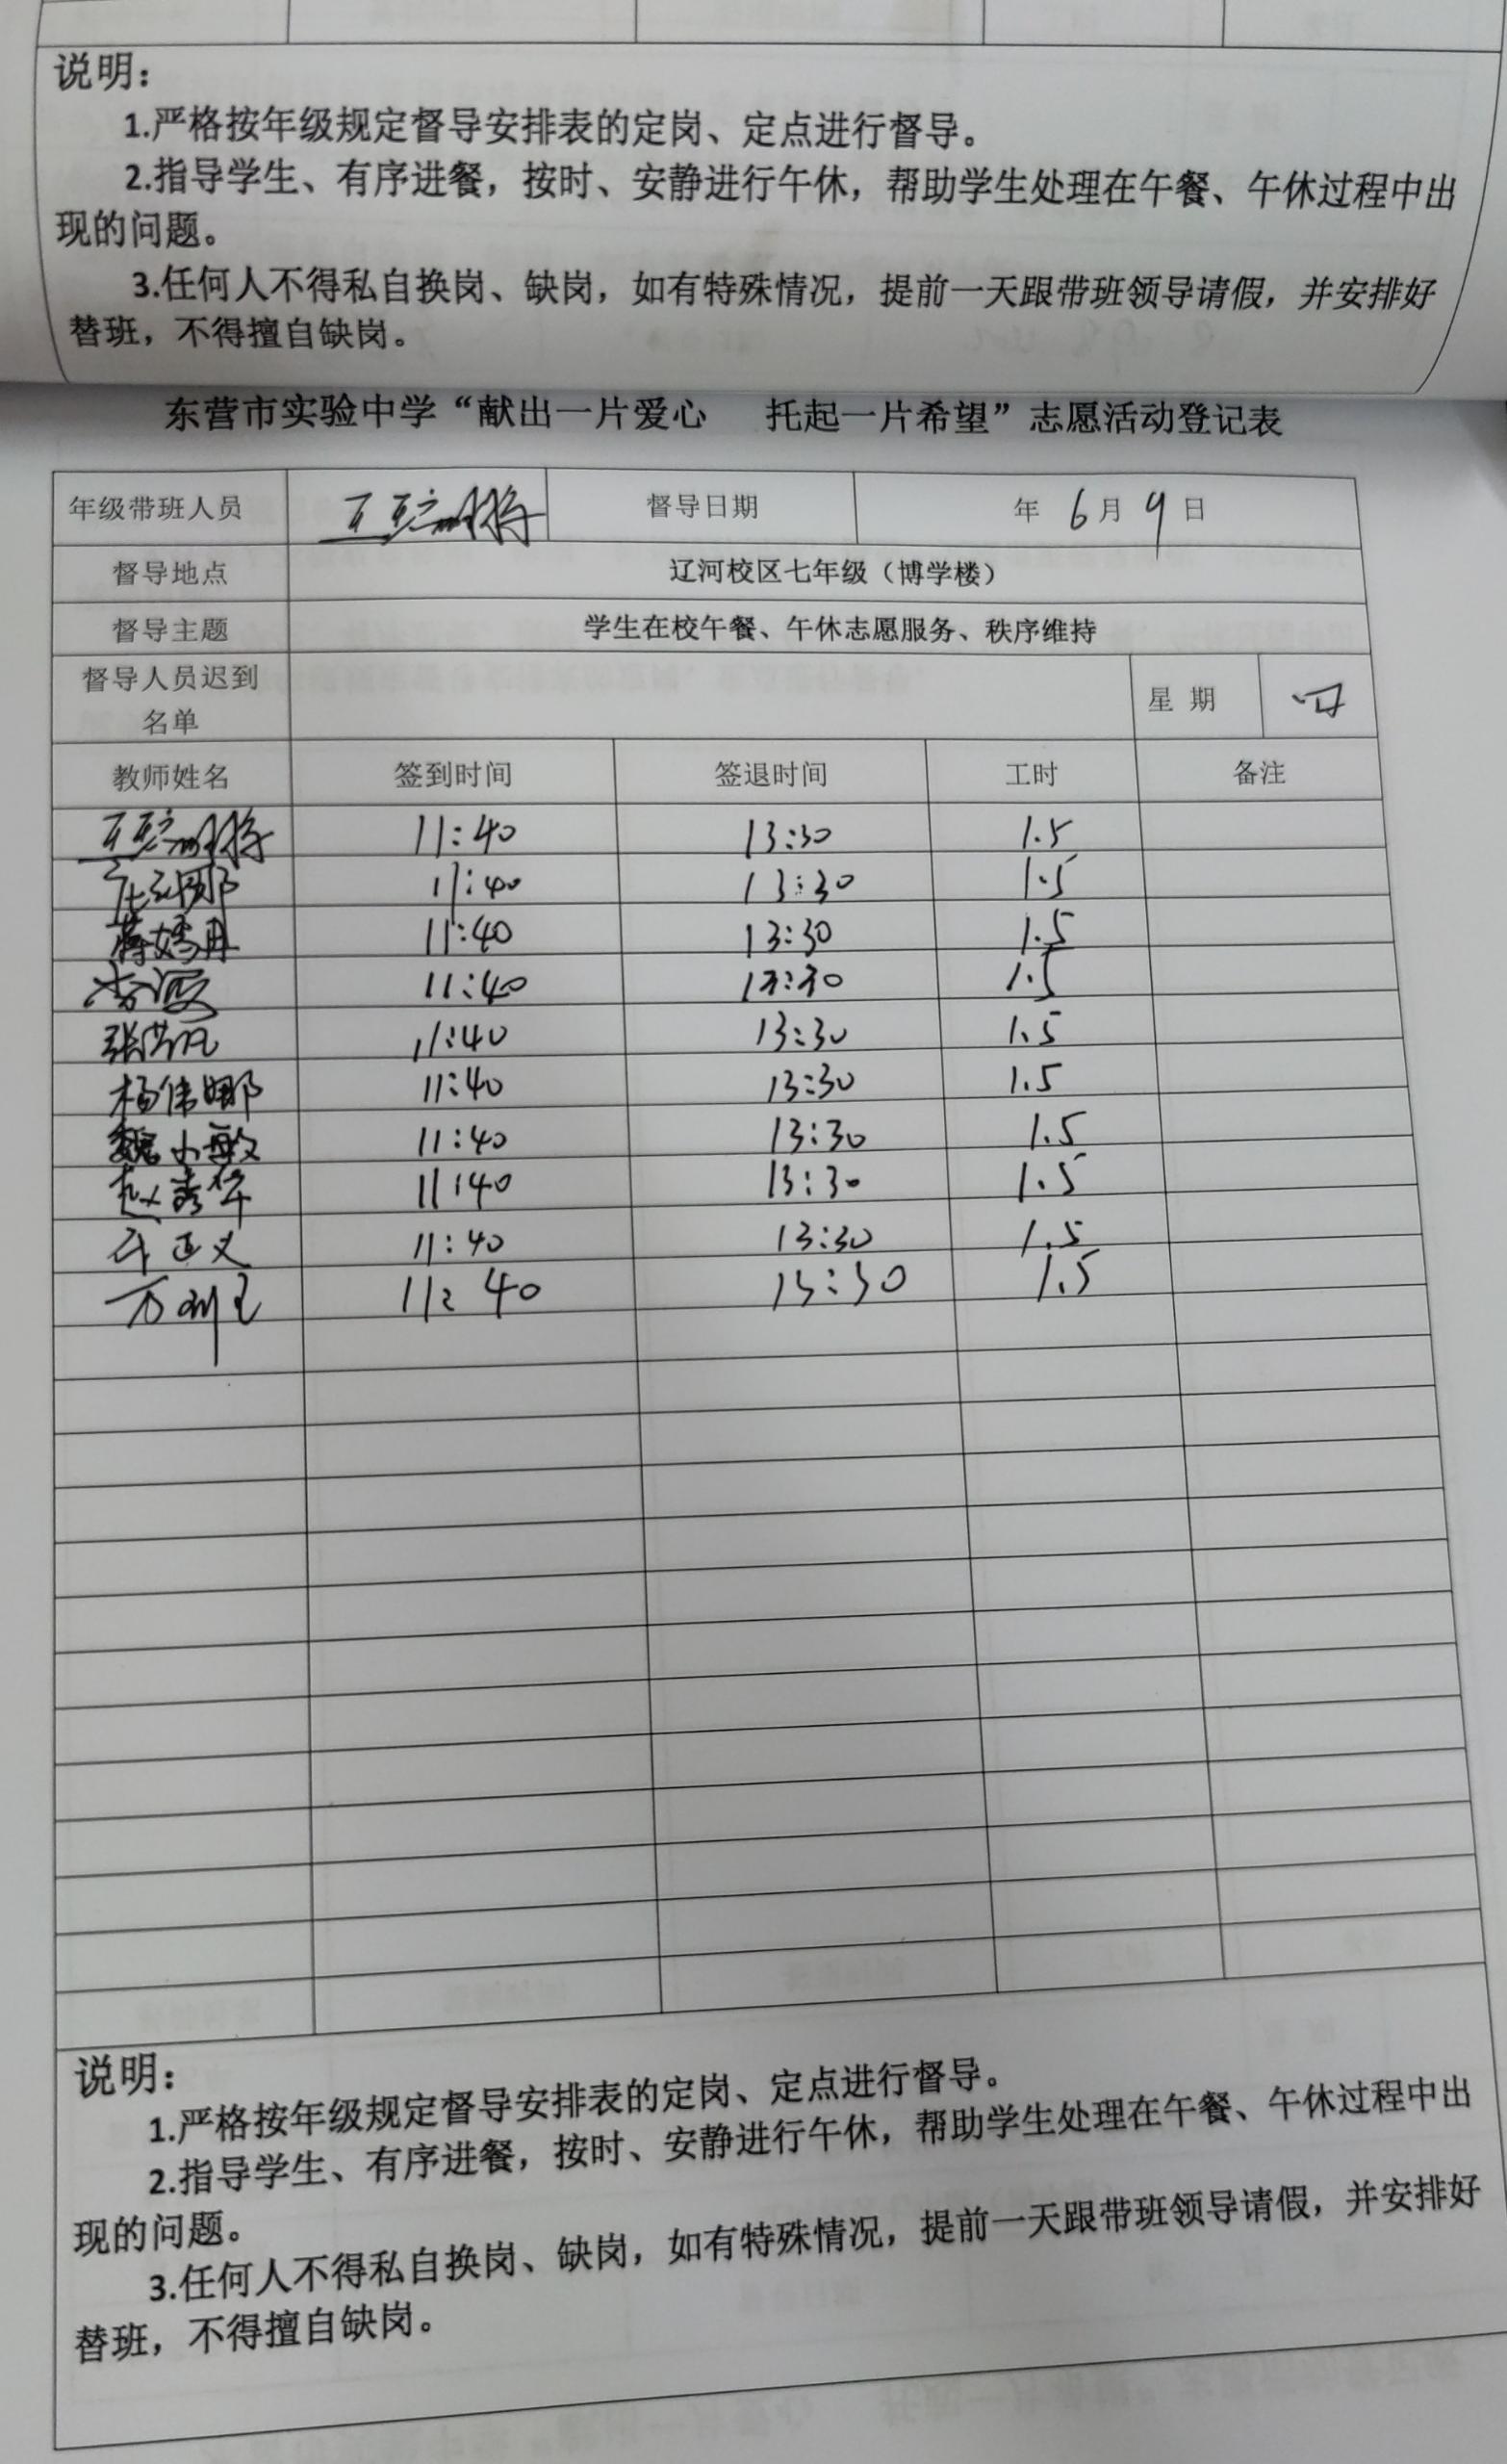 说明：
1.严格按年级规定督导安排表的定岗、定点进行督导。
2.指导学生、有序进餐，按时、安静进行午休，帮助学生处理在午餐、午休过程中出
现的问题。
3.任何人不得私自换岗、缺岗，如有特殊情况，提前一天跟带班领导请假，并安排好
替班，不得擅自缺岗。
东营市实验中学“献出一片爱心 托起一片希望”志愿活动登记表
年级带班人员 督导日期 年 6月 9日
督导地点 辽河校区七年级（博学楼）
督导主题 学生在校午餐、午休志愿服务、秩序维持
督导人员迟到
名单 星期 四
教师姓名 签到时间 签退时间 工时 备注
11:40 13:30 1.5
11:40 13:30 1.5
11:40 13:30 1.5
11:40 13:30 1.5
11:40 13:30 1.5
杨伟娜 11:40 13:30 1.5
魏小敏 11:40 13:30 1.5
赵秀华 11:40 13:30 1.5
正义 11:40 13:30 1.5
11:40 13:30 1.5
说明：
1.严格按年级规定督导安排表的定岗、定点进行督导。
2.指导学生、有序进餐，按时、安静进行午休，帮助学生处理在午餐、午休过程中出
现的问题。
3.任何人不得私自换岗、缺岗，如有特殊情况，提前一天跟带班领导请假，并安排好
替班，不得擅自缺岗。